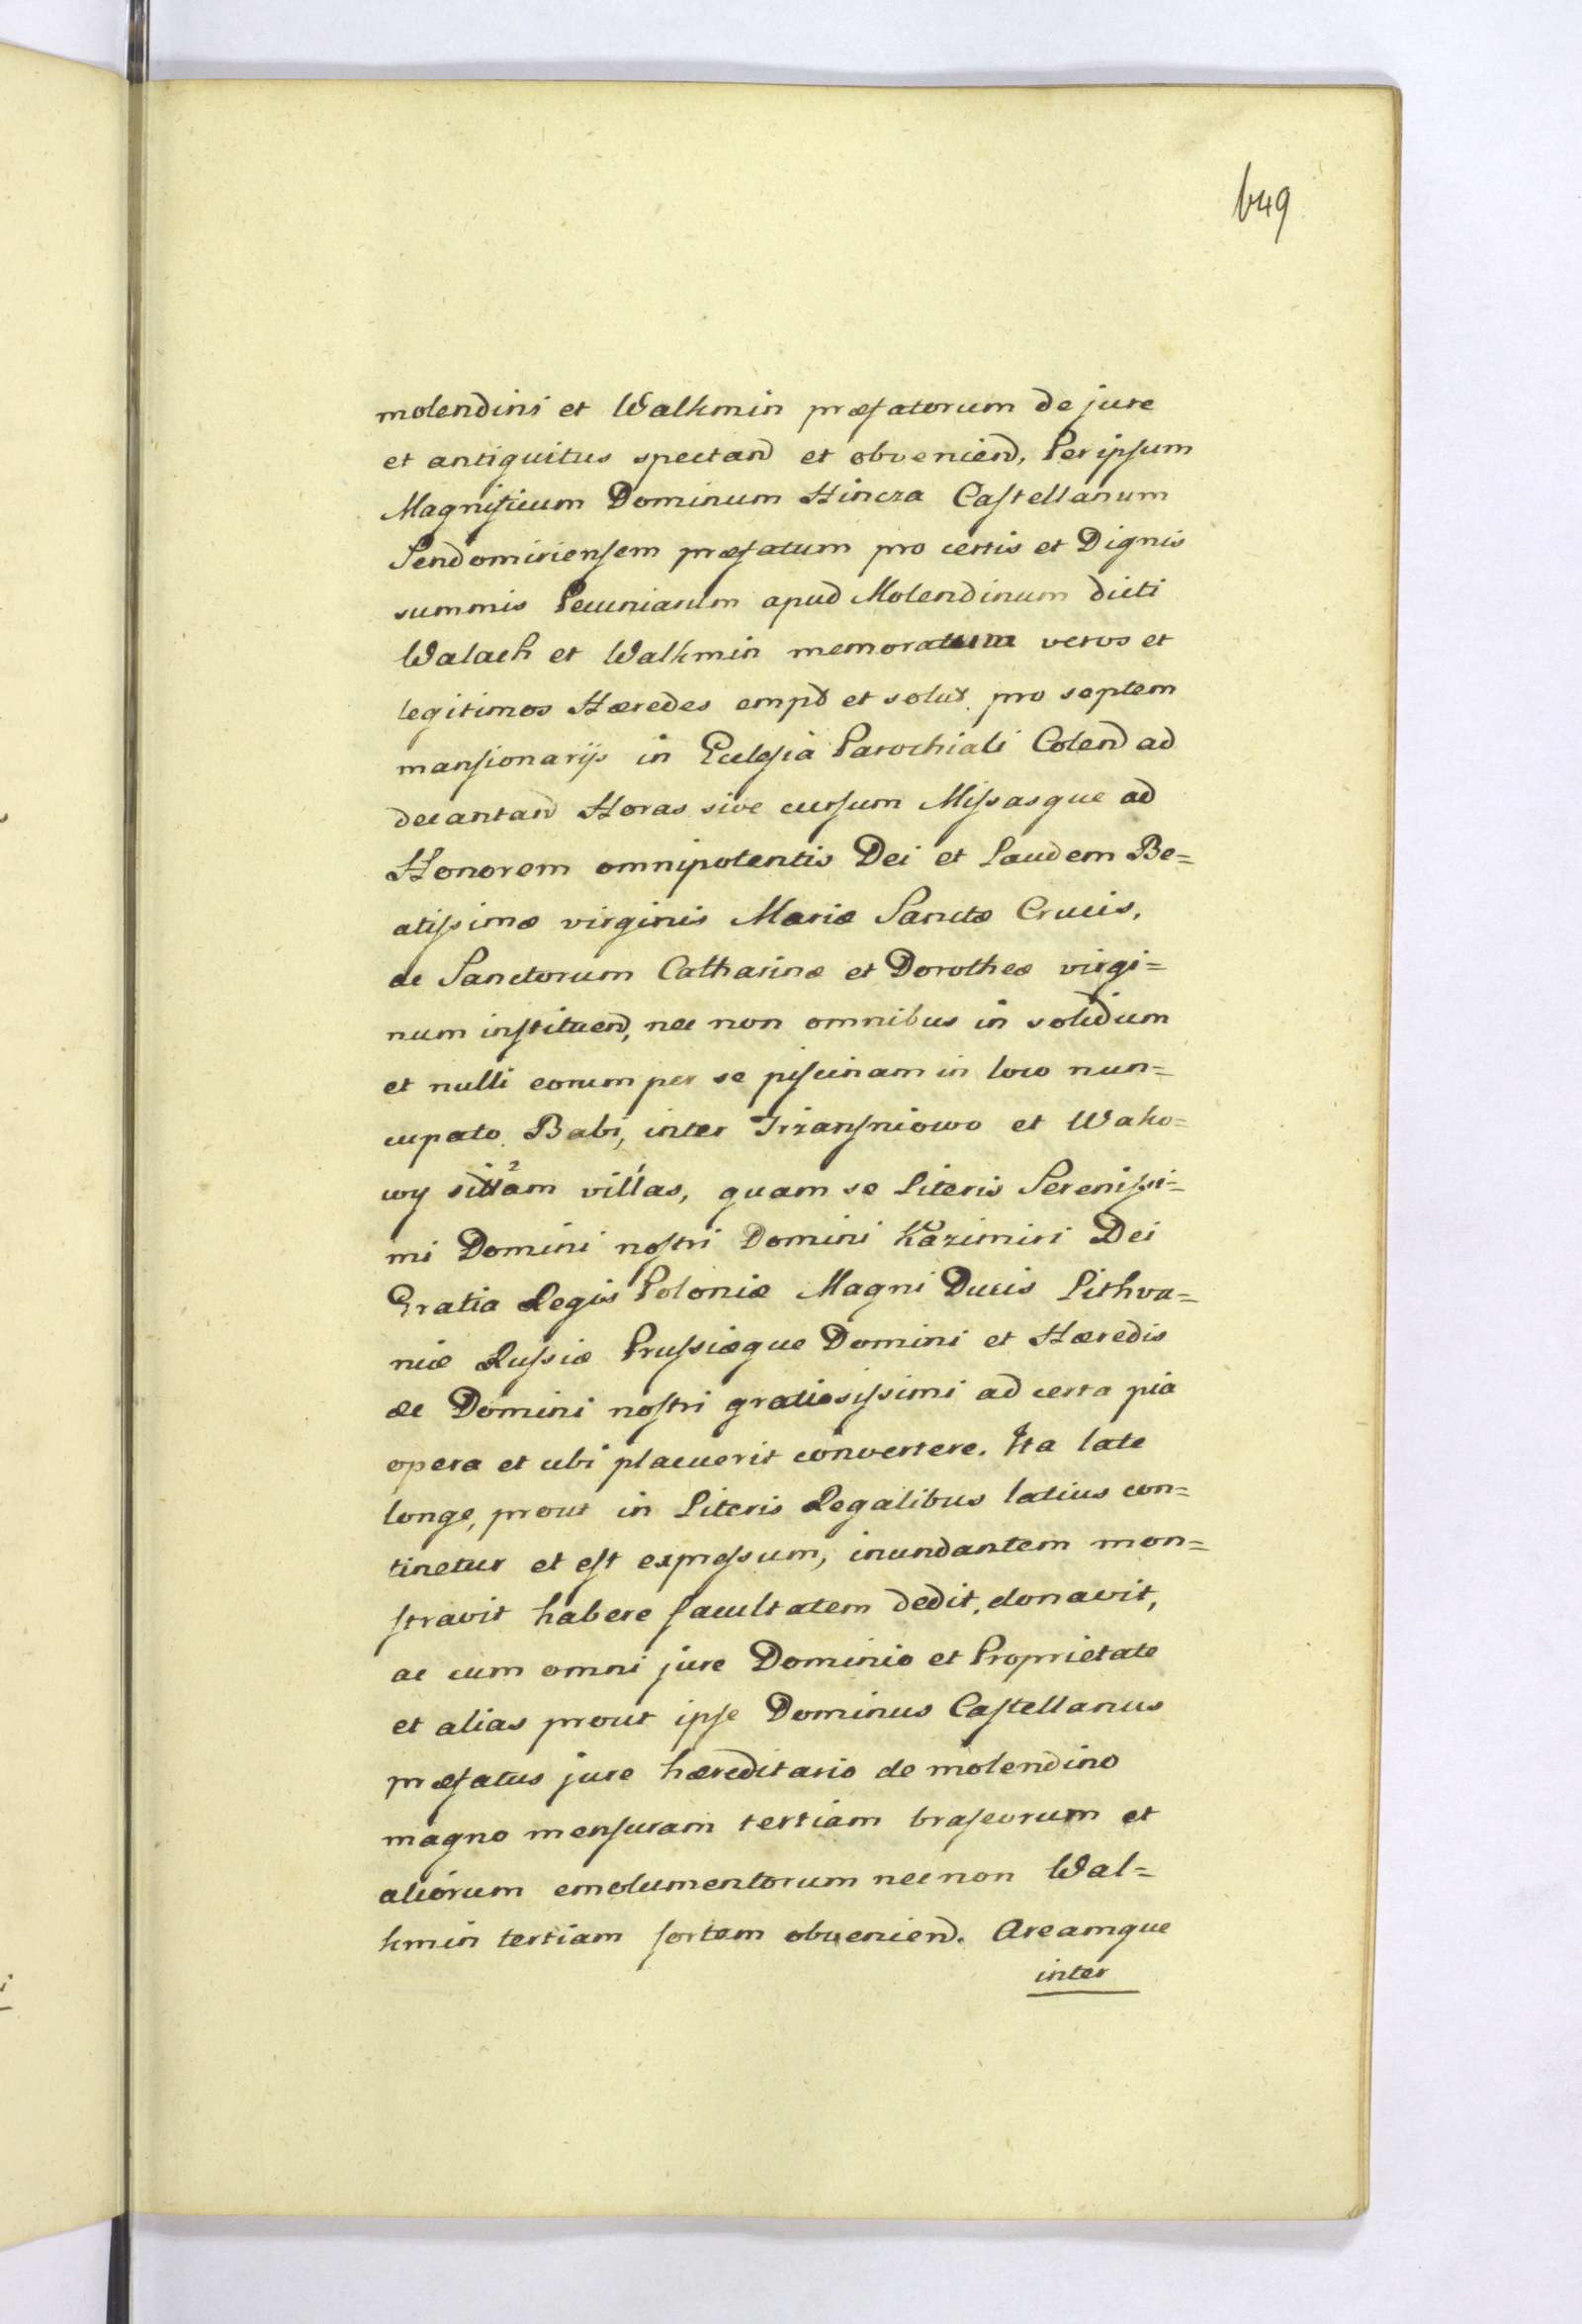 649
molendini et Walkmin præfatorum de jure
et antiquitus spectand et obveniend, Per ipsum
Magnificum Dominum Hincza Castellanum
Sendomiriensem præfatum pro certis et Dignis
summis Pecuniarum apud Molendinum dicti
Walach et Walkmin memoratum veros et
legitimos Hæredes empt et solut. pro septem
mansionarijs in Ecclesia Parochiali Colend ad
decantand Horas sive cursum Missasque ad
Honorem omnipotentis Dei et Laudem Be=
atissimæ virginis Mariæ Sanctæ Crucis,
ac Sanctorum Catharinæ et Dorotheæ virgi=
num instituend, nec non omnibus in solidum
et nulli eorum per se piscinam in loco nun=
cupato Babi, inter Trzansniowo et Wako=
wy sitam villas, quam se Literis Serenissi=
mi Domini nostri Domini Kazimiri Dei
Gratia Regis Poloniæ Magni Ducis Lithva=
niæ Russiæ Prussiæque Domini et Hæredis
ac Domini nostri gratiosissimi ad certa pia
opera et ubi placuerit convertere. Ita late
longe, prout in Literis Regalibus latius con=
tinetur et est expressum, inundantem mon=
stravit habere facultatem dedit, donavit,
ac cum omni jure Dominio et Proprietate
et alias prout ipse Dominus Castellanus
præfatus jure hæreditario de molendino
magno mensuram tertiam braseorum et
aliorum emolumentorum nec non Wal=
kmin tertiam sortem obveniend. Areamque
inter